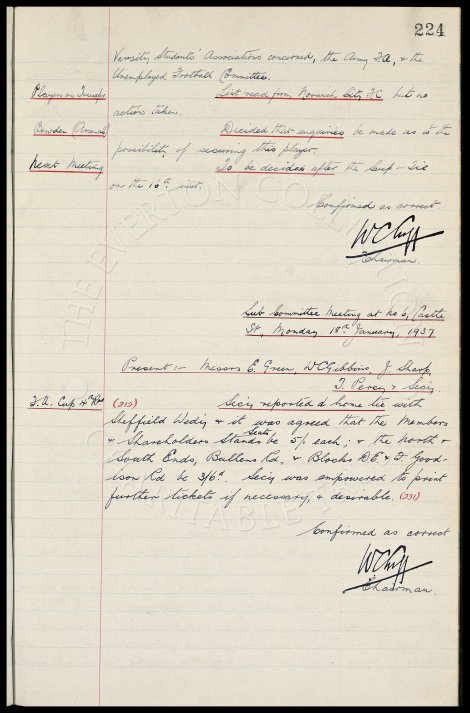 224
Varsity Students' Associations concerned, the Army F.A., & the
Unemployed Football Committee.
Players on Transfer List read from Norwich City F.C. but no
action taken.
Bowden (Arsenal) Decided that enquiries be made as to the
possibility of securing this player.
Next Meeting To be decided after the Cup-Tie
on the 16th inst.
Confirmed as correct.
WCCuff
Chairman.
Sub Committee Meeting at No 6, Castle
St, Monday 18th January, 1937
Present:- Messrs E. Green, WCGibbins, J Sharp,
T. Percy & Secy.
F.A. Cup 4th Rd (212) Secy reported a home tie with
Sheffield Wedy & it was agreed that the Members
& Shareholders Stands Seats be 5/- each; & the North &
South Ends, Bullens Rd, & Blocks D E & F Good-
ison Rd be 3/6d. Secy was empowered to print
further tickets if necessary, & desirable. (231)
Confirmed as correct
WCCuff
Chairman.
THE EVERTON COLLECTION
CHARITABLE